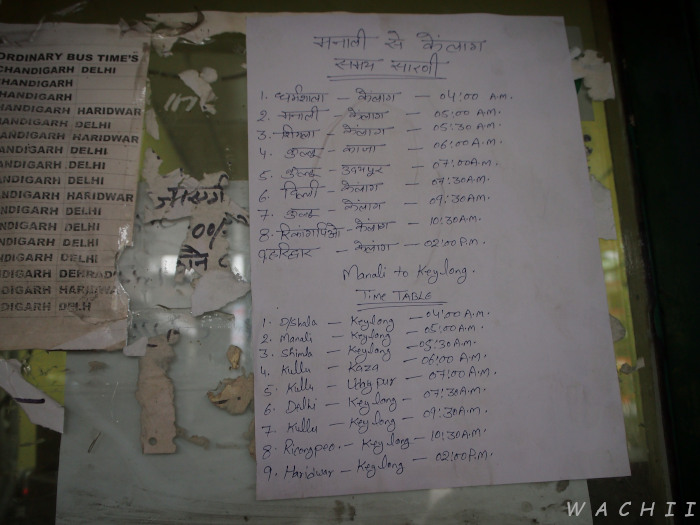 ORDINARY BUS TIME'S
CHANDIGARH DELHI
CHANDIGARH
CHANDIGARH
HANDIGARH HARIDWAR
HANDIGARH DELHI
HANDIGARH HARIDWAR
ANDIGARH DELHI
ANDIGARH DELHI
ANDIGARH DELHI
ANDIGARH HARIDWAR
ANDIGARH DELHI
NDIGARH DELHI
NDIGARH DELHI
NDIGARH DEHRAD
NDIGARH HARIDWA
DIGARH DELH
मनाली से केलांग
समय सारणी
1. धर्मशाला – केलांग – 04:00 A.M.
2. मनाली – केलांग – 05:00 A.M.
3. शिमला – केलांग – 05:30 A.M.
4. कुल्लू – काजा – 06:00 A.M.
5. कुल्लू – उदयपुर – 07:00 A.M.
6. दिल्ली – केलांग – 07:30 A.M.
7. कुल्लू – केलांग – 09:30 A.M.
8. रिकांगपिओ – केलांग – 10:30 A.M.
9. हरिद्वार – केलांग – 02:00 P.M.
Manali to Keylong.
TIME TABLE
1. D/Shala – Keylong – 04:00 A.M.
2. Manali – Keylong – 05:00 A.M.
3. Shimla – Keylong – 05:30 A.M.
4. Kullu – Kaza – 06:00 A.M.
5. Kullu – Udaypur – 07:00 A.M.
6. Delhi – Keylong – 07:30 A.M.
7. Kullu – Keylong – 09:30 A.M.
8. Ricongpeo – Keylong – 10:30 A.M.
9. Haridwar – Keylong – 02:00 P.M.
WACHII